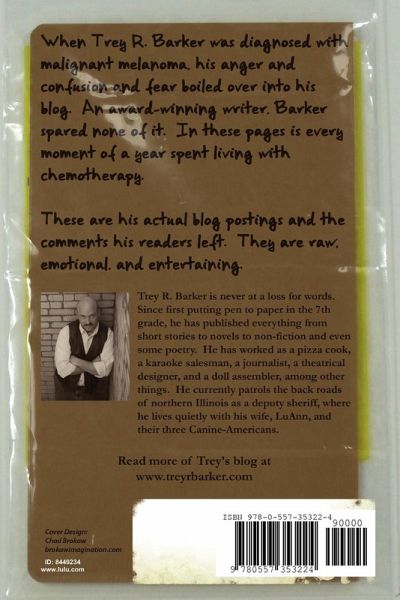 When Trey R. Barker was diagnosed with
malignant melanoma, his anger and
confusion and fear boiled over into his
blog.  An award-winning writer, Barker
spared none of it.  In these pages is every
moment of a year spent living with
chemotherapy.
These are his actual blog postings and the
comments his readers left.  They are raw,
emotional, and entertaining.
Trey R. Barker is never at a loss for words.
Since first putting pen to paper in the 7th
grade, he has published everything from
short stories to novels to non-fiction and even
some poetry.  He has worked as a pizza cook,
a karaoke salesman, a journalist, a theatrical
designer, and a doll assembler, among other
things.  He currently patrols the back roads
of northern Illinois as a deputy sheriff, where
he lives quietly with his wife, LuAnn, and
their three Canine-Americans.
Read more of Trey's blog at
www.treyrbarker.com
Cover Design:
Chad Brokaw
brokawimagination.com
ID: 8449234
www.lulu.com
ISBN 978-0-557-35322-4
90000
9 780557 353224